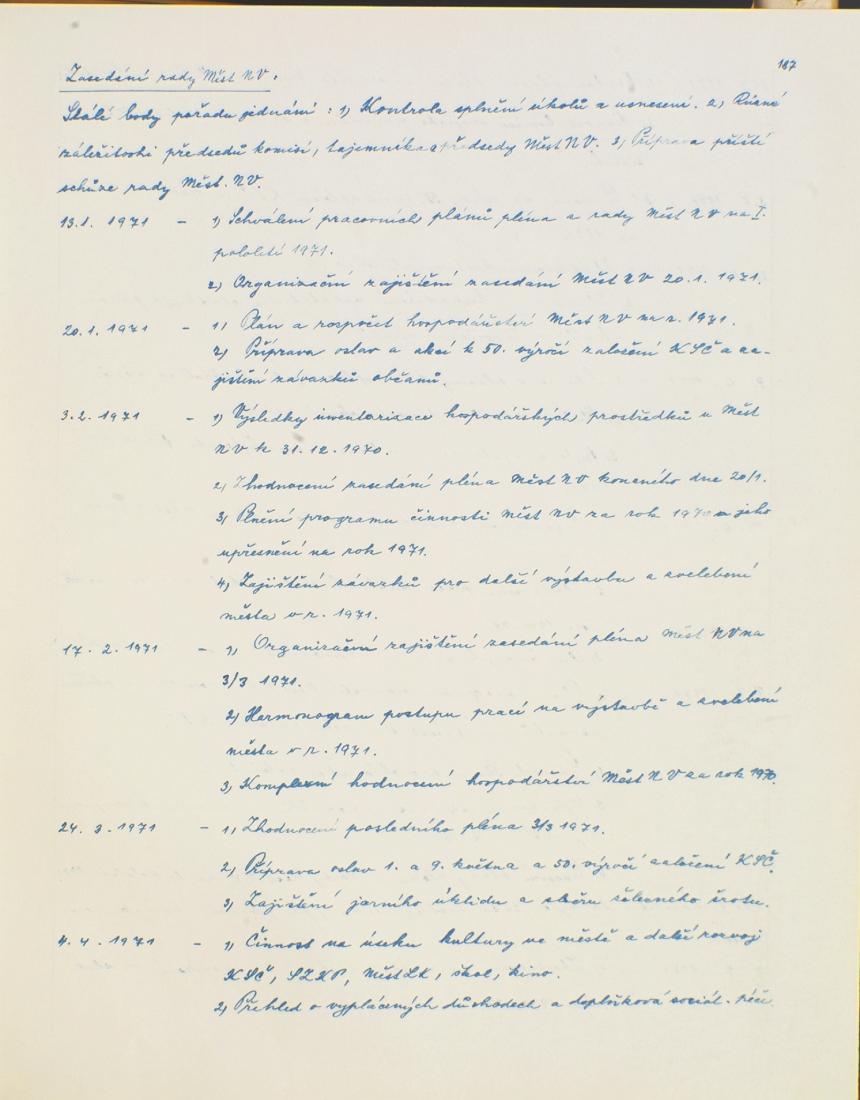 187
Zasedání rady Měst NV.
Stálé body pořadu jednání: 1) Kontrola splnění úkolů a usnesení. 2) Různé
záležitosti předsedů komisí, tajemníka a předsedy Měst NV. 3) Příprava příští
schůze rady Měst. NV.
13.1. 1971 - 1) Schválení pracovních plánů pléna a rady Měst NV na I.
pololetí 1971.
2) Organizační zajištění zasedání Měst NV 20.1. 1971.
20.1. 1971 - 1) Plán a rozpočet hospodářství Měst NV na r. 1971.
2) Příprava oslav a akcí k 50. výročí založení KSČ a za-
jištění závazků občanů.
3.2. 1971 - 1) Výsledky inventarizace hospodářských prostředků u Měst
NV k 31.12.1970.
2) Zhodnocení zasedání pléna Měst NV konaného dne 20/1.
3) Plnění programu činnosti Měst NV za rok 1970 a jeho
upřesnění na rok 1971.
4) Zajištění závazků pro další výstavbu a zvelebení
města v r. 1971.
17. 2. 1971 - 1) Organizační zajištění zasedání pléna Měst NV na
3/3 1971.
2) Harmonogram postupu prací na výstavbě a zvelebení
města v r. 1971.
3) Komplexní hodnocení hospodářství Měst NV za rok 1970.
24. 3. 1971 - 1) Zhodnocení posledního pléna 3/3 1971.
2) Příprava oslav 1. a 9. května a 50. výročí založení KSČ.
3) Zajištění jarního úklidu a sběru železného šrotu.
4. 4. 1971 - 1) Činnost na úseku kultury ve městě a další rozvoj
KSČ, SZKP, Měst LK, škol, kino.
2) Přehled o vyplácených důchodech a doplňková sociál. péči